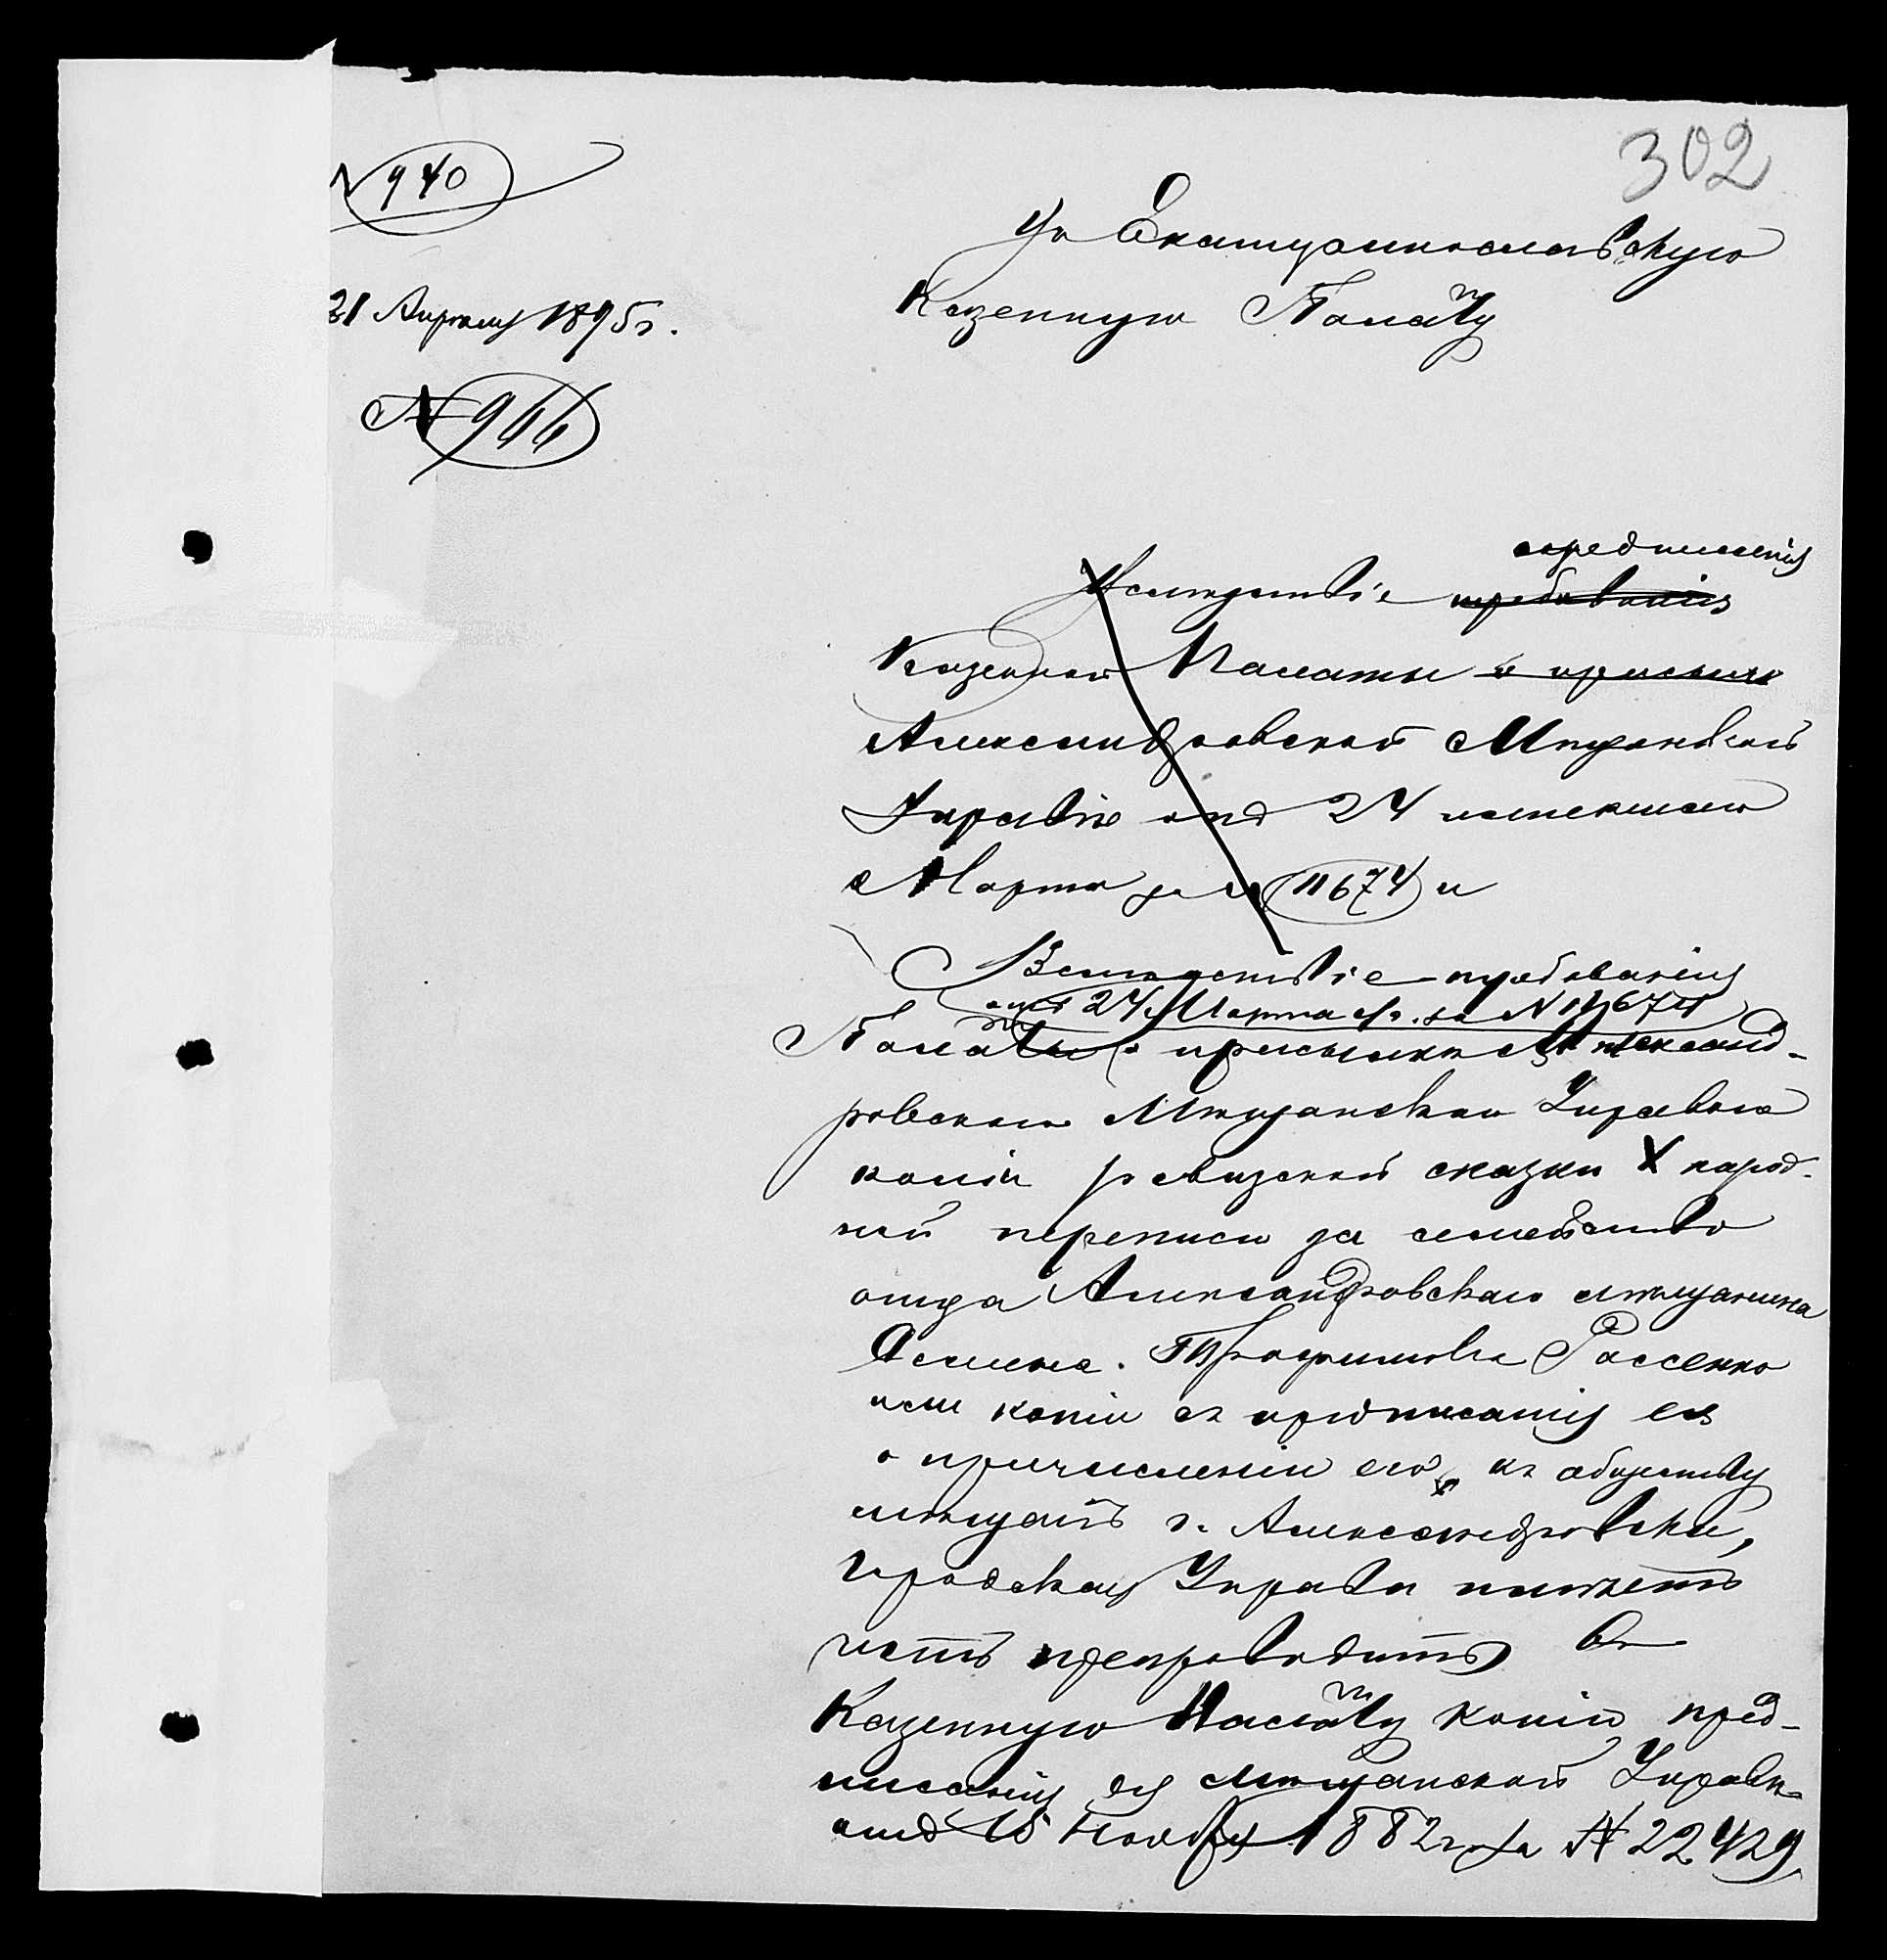 302
N 940
Въ Екатеринославскую
Казенную Палату
21 Апреля 1895 г.
N 966
предписанія
Вслѣдствіе требованія
Казенной Палаты о присылкѣ
Александровской Мѣщанской
Управѣ отъ 24 истекшаго
Марта за N 11674 и
Вслѣдствіе требованія
отъ 24 Марта с/г. за N 11674
Палаты о присылкѣ Александ-
ровскою Мѣщанскою Управою
копіи ревизской сказки X народ-
ной переписи за семейство
отца Александровскаго мѣщанина
Трофимова Россенко
или копіи съ предписанія ея
о причисленіи его къ обществу
мѣщанъ г. Александровска,
Городская Управа имѣетъ
честь препроводить въ
Казенную Палату копію пред-
писанія ея Мѣщанской Управѣ
отъ 15 Ноября 1882 года N 22429